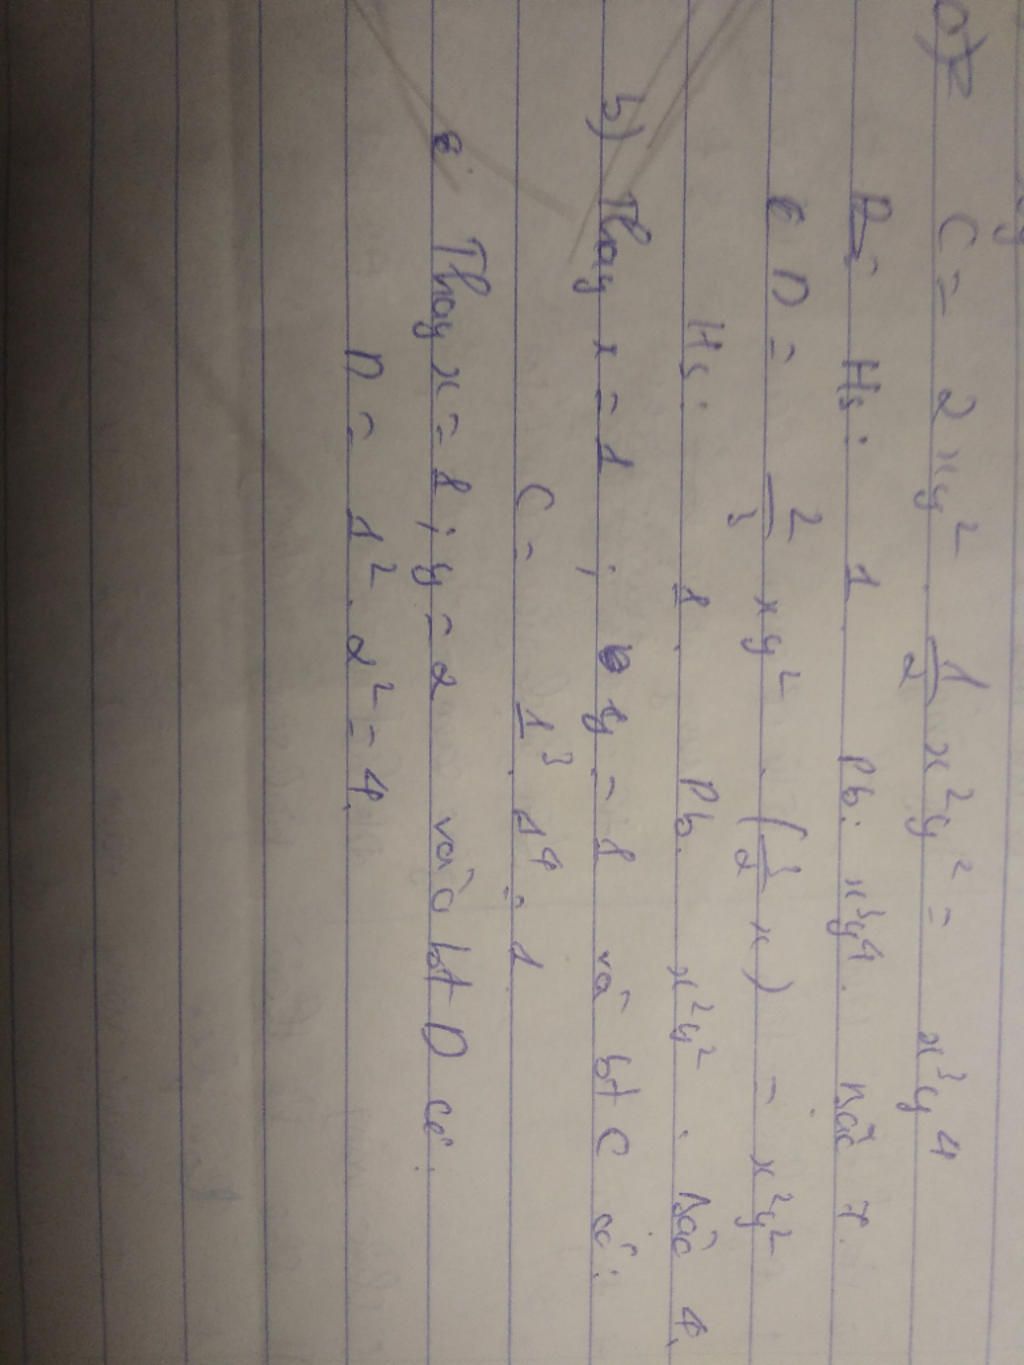 C = 2xy² . 1/2 x²y² = x³y⁴
Hs: 1. Pb: x³y⁴. Bậc 7.
D = 2/3 xy² . (3/2 x) = x²y²
Hs: 1. Pb. x²y². Bậc 4.
b) Thay x = 1 ; y = 1 và bt C có:
C = 1³ . 1⁴ = 1
Thay x = 1 ; y = 2 vào bt D có.
D = 1² . 2² = 4.